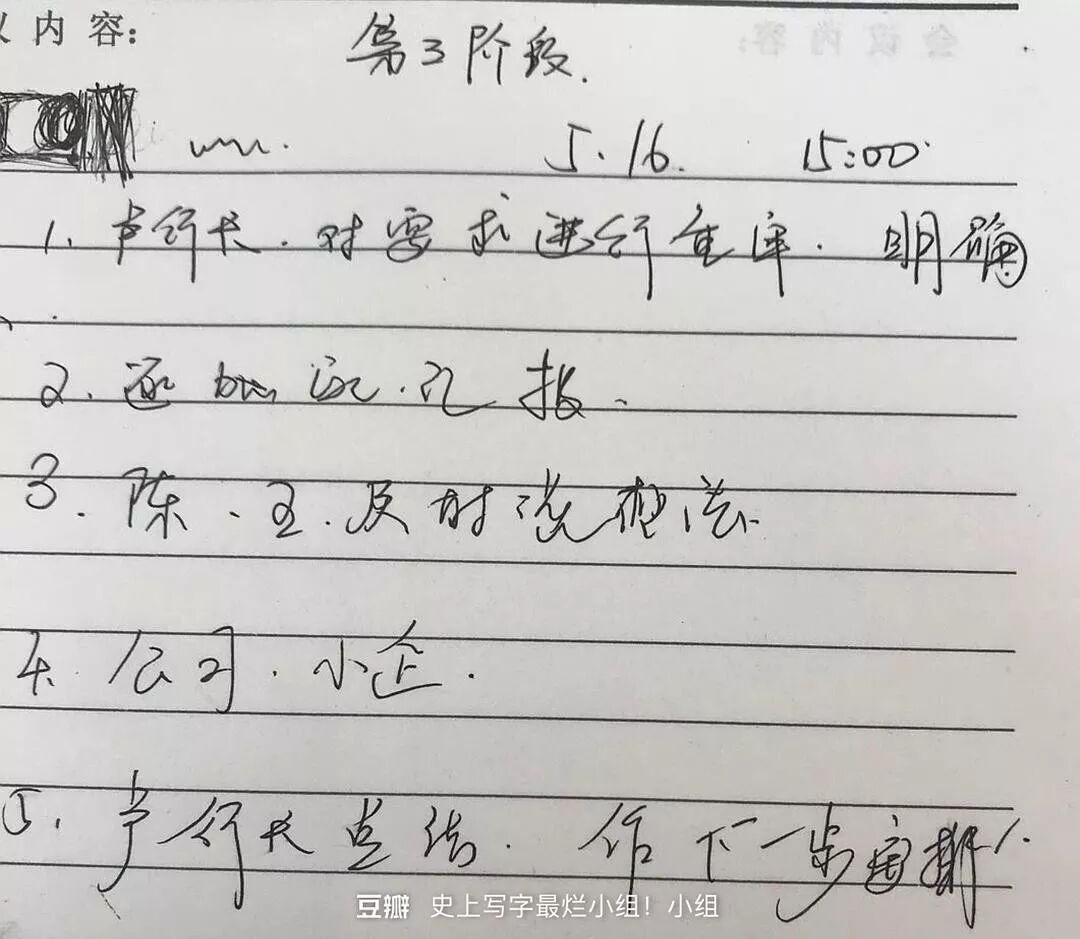 义内容:
第3阶段.
5.16. 15:00.
1. 卢行长. 对需求进行重审. 明确
2. 汇报.
3. 陈、王. 及时说想法.
4. 公司. 小企.
5. 卢行长总结. 作下一步安排.
豆瓣 史上写字最烂小组！小组